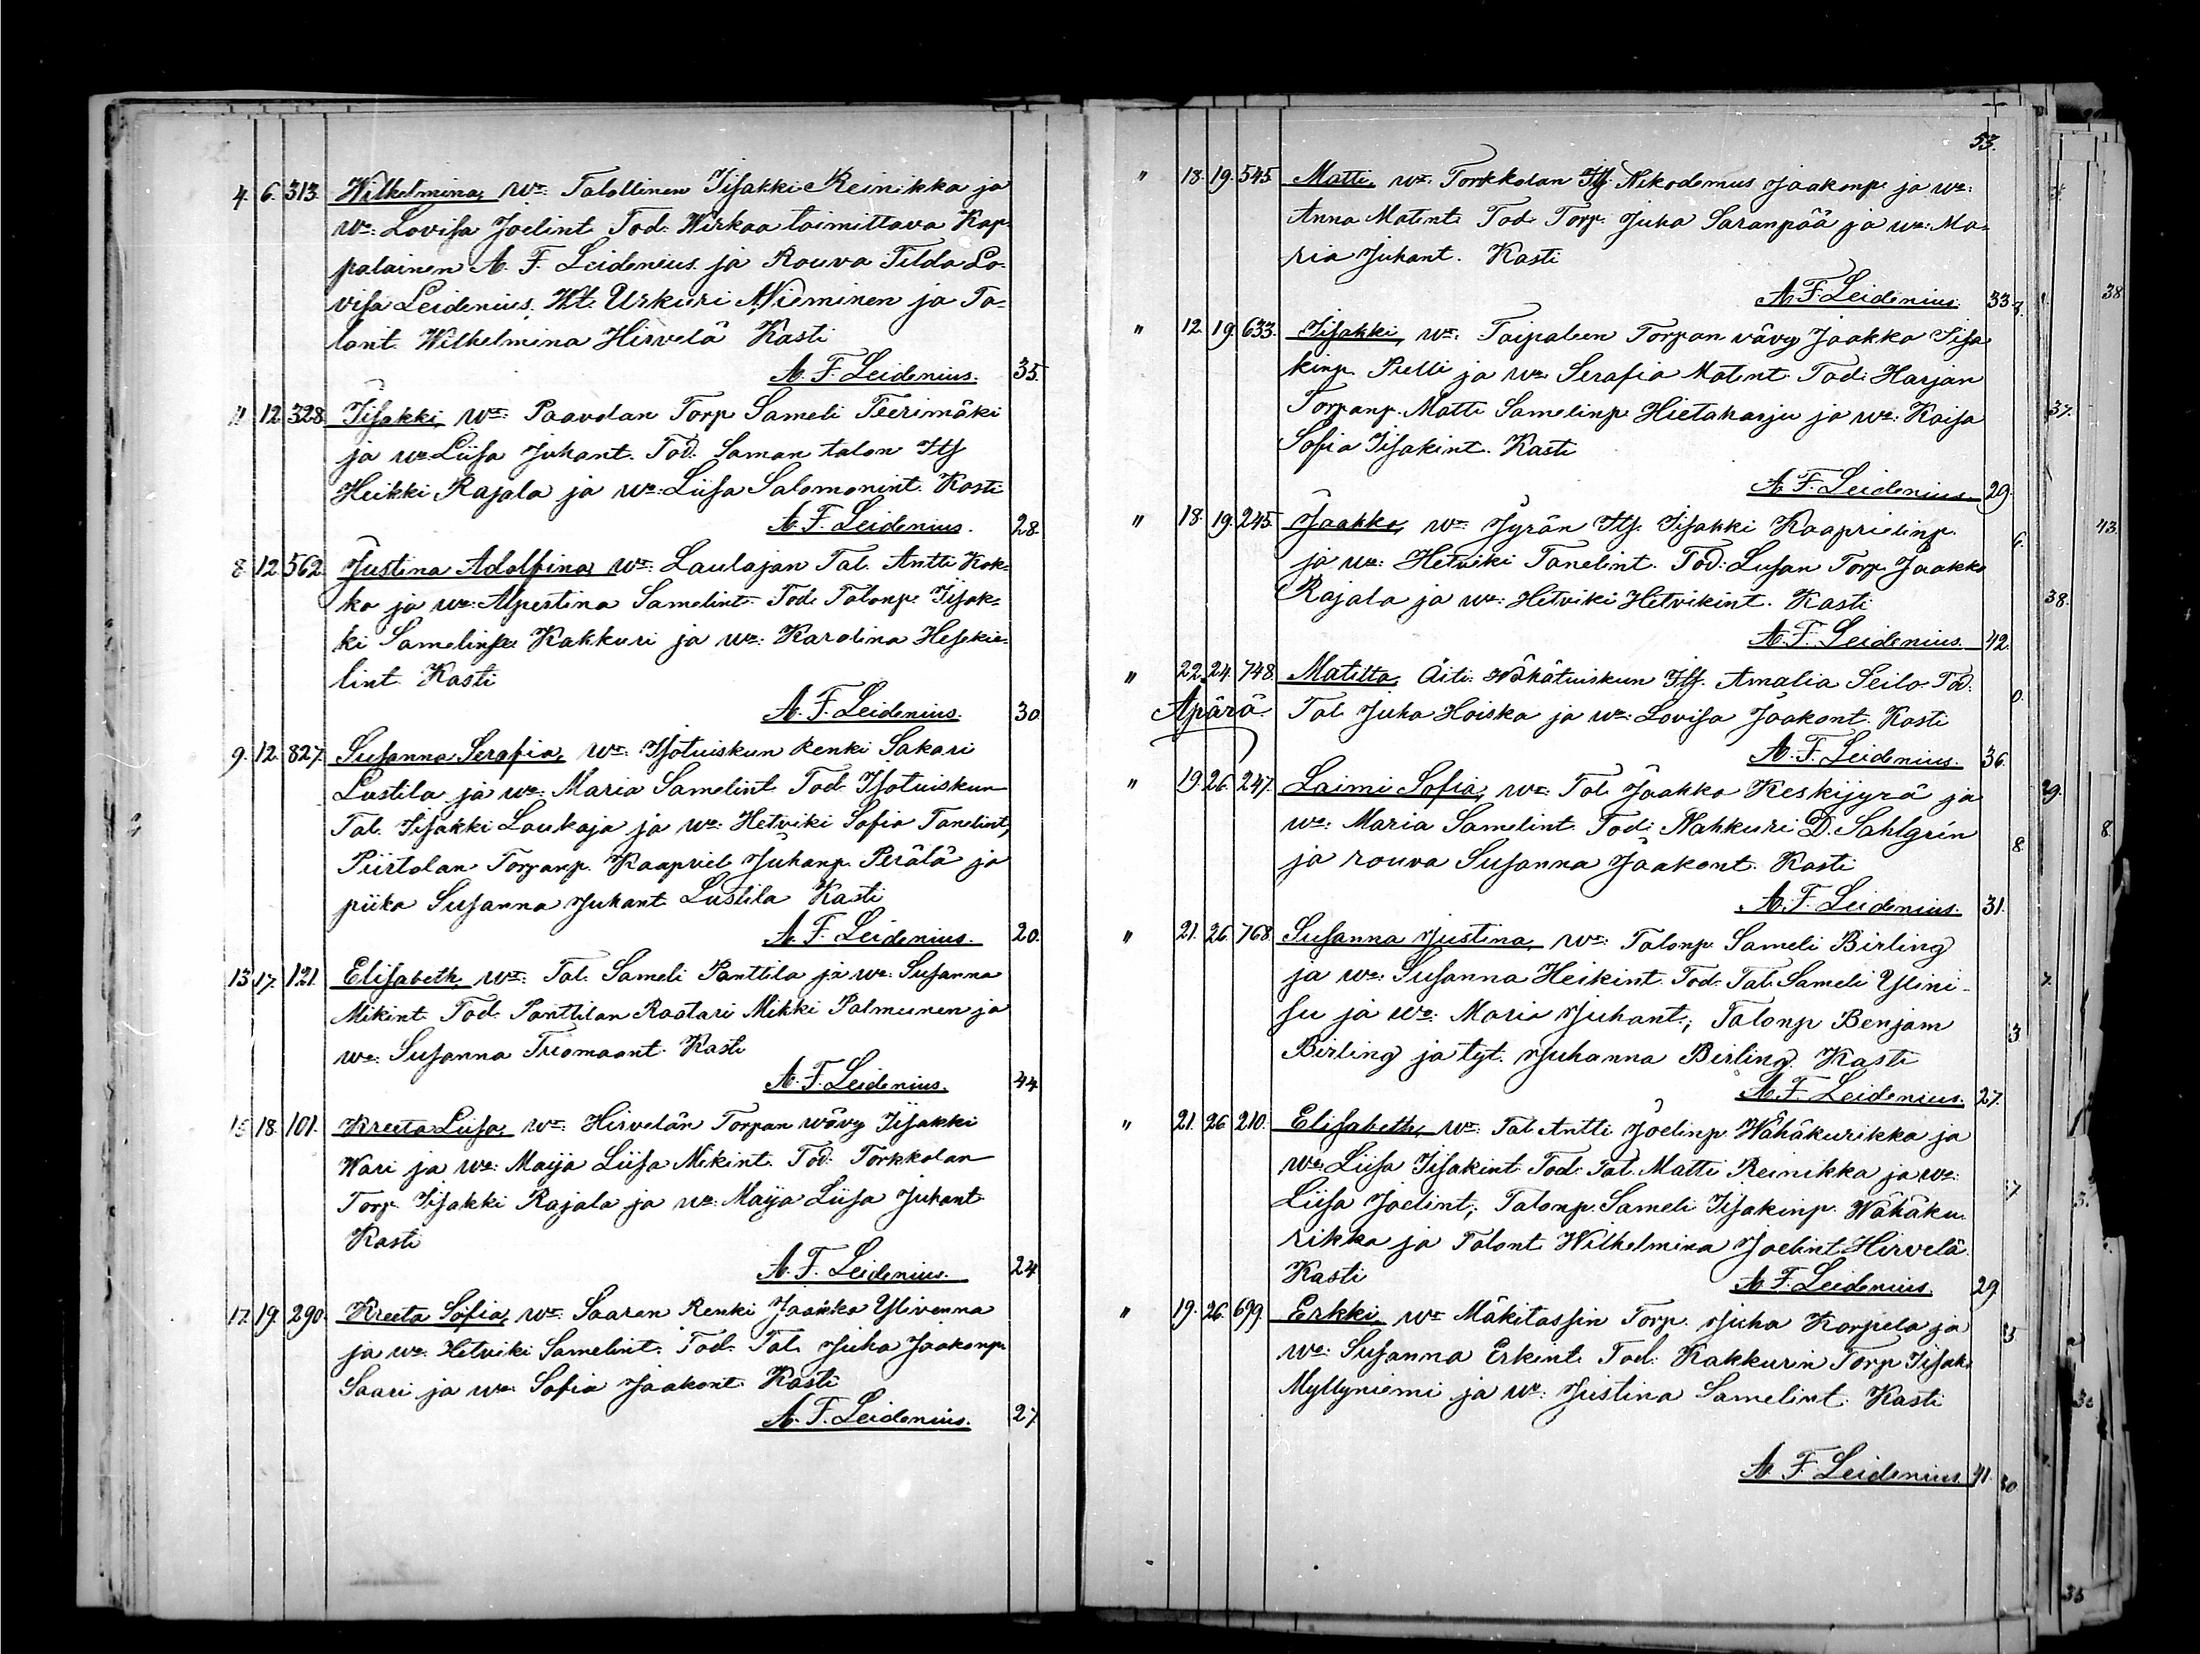 4. 6. 313. Wilhelmina, Wa: Talollinen Iisakki Reinikka ja
wa: Lovisa Joelint. Tod: Wirkaa toimittava Kap-
palainen A. F. Leidenius ja Rouva Tilda Lo-
visa Leidenius. Urkuri Nieminen ja Ta-
lont. Wilhelmina Hirvelä Kasti
A. F. Leidenius. 35.
12. 328. Iisakki, Wa: Paavolan Torp. Sameli Teerimäki
ja wa: Liisa Juhant. Tod. Saman talon Its.
Heikki Rajala ja wa: Liisa Salomonint. Kasti
A. F. Leidenius. 28.
8. 12. 562. Justina Adolfina, Wa: Laulajan Tal. Antti Kok-
ko ja wa: Alpertina Samelint. Tod. Talonp. Iisak-
ki Samelinp. Kakkuri ja wa: Karolina Heskie-
lint. Kasti
A. F. Leidenius. 30.
9. 12. 827. Susanna Serafia, Wa: Isotuiskun Renki Sakari
Lustila ja wa: Maria Samelint. Tod. Isotuiskun
Tal. Iisakki Laukaja ja wa: Hetviki Sofia Tanelint,
Piirtolan Torpanp. Kaapriel Juhanp. Perälä ja
piika Susanna Juhant. Lustila Kasti
A. F. Leidenius. 20.
13. 17. 121. Elisabeth, Wa: Tal. Sameli Panttila ja wa: Susanna
Mikint. Tod. Panttilan Raatari Mikki Palmunen ja
wa: Susanna Tuomaant. Kasti
A. F. Leidenius. 44.
18. 101. Kreeta Liisa, Wa: Hirvelän Torpan wävy Iisakki
Wari ja wa: Maija Liisa Mikint. Tod: Torkkolan
Torp. Iisakki Rajala ja wa: Maija Liisa Juhant.
Kasti
A. F. Leidenius. 24
17. 19. 290. Kreeta Sofia, Wa: Saaren Renki Jaakko Ylivenna
ja wa: Hetviki Samelint. Tod. Tal. Juha Jaakonp.
Saari ja wa: Sofia Jaakont. Kasti
A. F. Leidenius. 27
53.
" 18. 19. 545. Matti, Wa: Torkkolan Its. Nikodemus Jaakonp. ja wa:
Anna Matint. Tod. Torp. Juha Saranpää ja wa: Ma-
ria Juhant. Kasti
A. F. Leidenius. 33.
" 12. 19. 633. Iisakki, Wa: Taipaleen Torpan vävy Jaakko Iisa
kinp. Pelli ja wa: Serafia Matint. Tod: Harjan
Torpanp. Matti Samelinp. Hietaharju ja wa: Kaisa
Sofia Iisakint. Kasti
A. F. Leidenius. 29.
" 18. 19. 245. Jaakko, Wa: Jyrän Its. Iisakki Kaaprielinp.
ja wa: Hetviki Tanelint. Tod: Lusan Torp. Jaakko
Rajala ja wa: Hetviki Hetvikint. Kasti
A. F. Leidenius. 42.
" 22. 24. 748. Matilta, Äiti: Wähätuiskun Its. Amalia Seilo. Tod.
Apärä. Tal. Juha Hoiska ja wa: Lovisa Jaakont. Kasti
A. F. Leidenius. 36.
" 19. 26. 247. Laimi Sofia, Wa: Tal. Jaakko Keskijyrä ja
wa: Maria Samelint. Tod: Nahkuri D. Sahlgrén
ja rouva Susanna Jaakont. Kasti
A. F. Leidenius. 31.
" 21. 26. 768. Susanna Justina, Wa: Talonp. Sameli Birling
ja wa: Susanna Heikint. Tod. Tal. Sameli Ylini-
su ja wa: Maria Juhant.; Talonp. Benjam
Birling ja tyt. Juhanna Birling. Kasti
A. F. Leidenius. 27.
" 21. 26. 210. Elisabeth, Wa: Tal. Antti Joelinp. Wähäkurikka ja
wa: Liisa Iisakint. Tod. Tal. Matti Reinikka ja wa:
Liisa Joelint.; Talonp. Sameli Iisakinp. Wähäku
rikka ja Talont. Wilhelmina Joelint. Hirvelä.
Kasti
A. F. Leidenius. 29.
" 19. 26. 699. Erkki, Wa: Mäkitassin Torp. Juha Korpela ja
wa: Susanna Erkint. Tod. Kakkurin Torp. Iisak.
Myllyniemi ja wa: Justina Samelint. Kasti
A. F. Leidenius. 41.